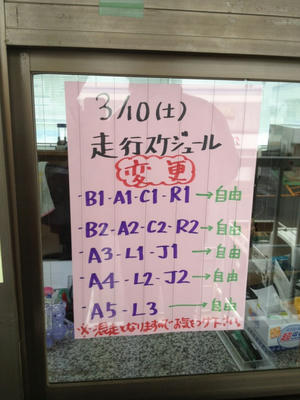 3/10(土)
走行スケジュール
変更
-B1-A1-C1-R1→自由
-B2-A2-C2-R2→自由
-A3-L1-J1→自由
-A4-L2-J2→自由
A5-L3→自由
※混走となりますのでお気をつけ下さい